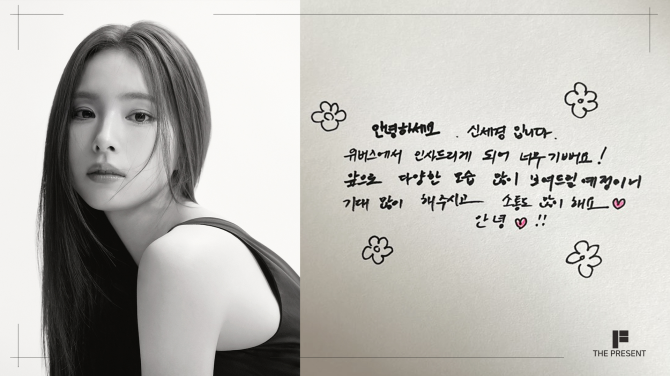 안녕하세요. 신세경 입니다.
위버스에서 인사드리게 되어 너무 기뻐요!
앞으로 다양한 모습 많이 보여드릴 예정이니
기대 많이 해주시고 소통도 많이 해요
안녕 !!
THE PRESENT